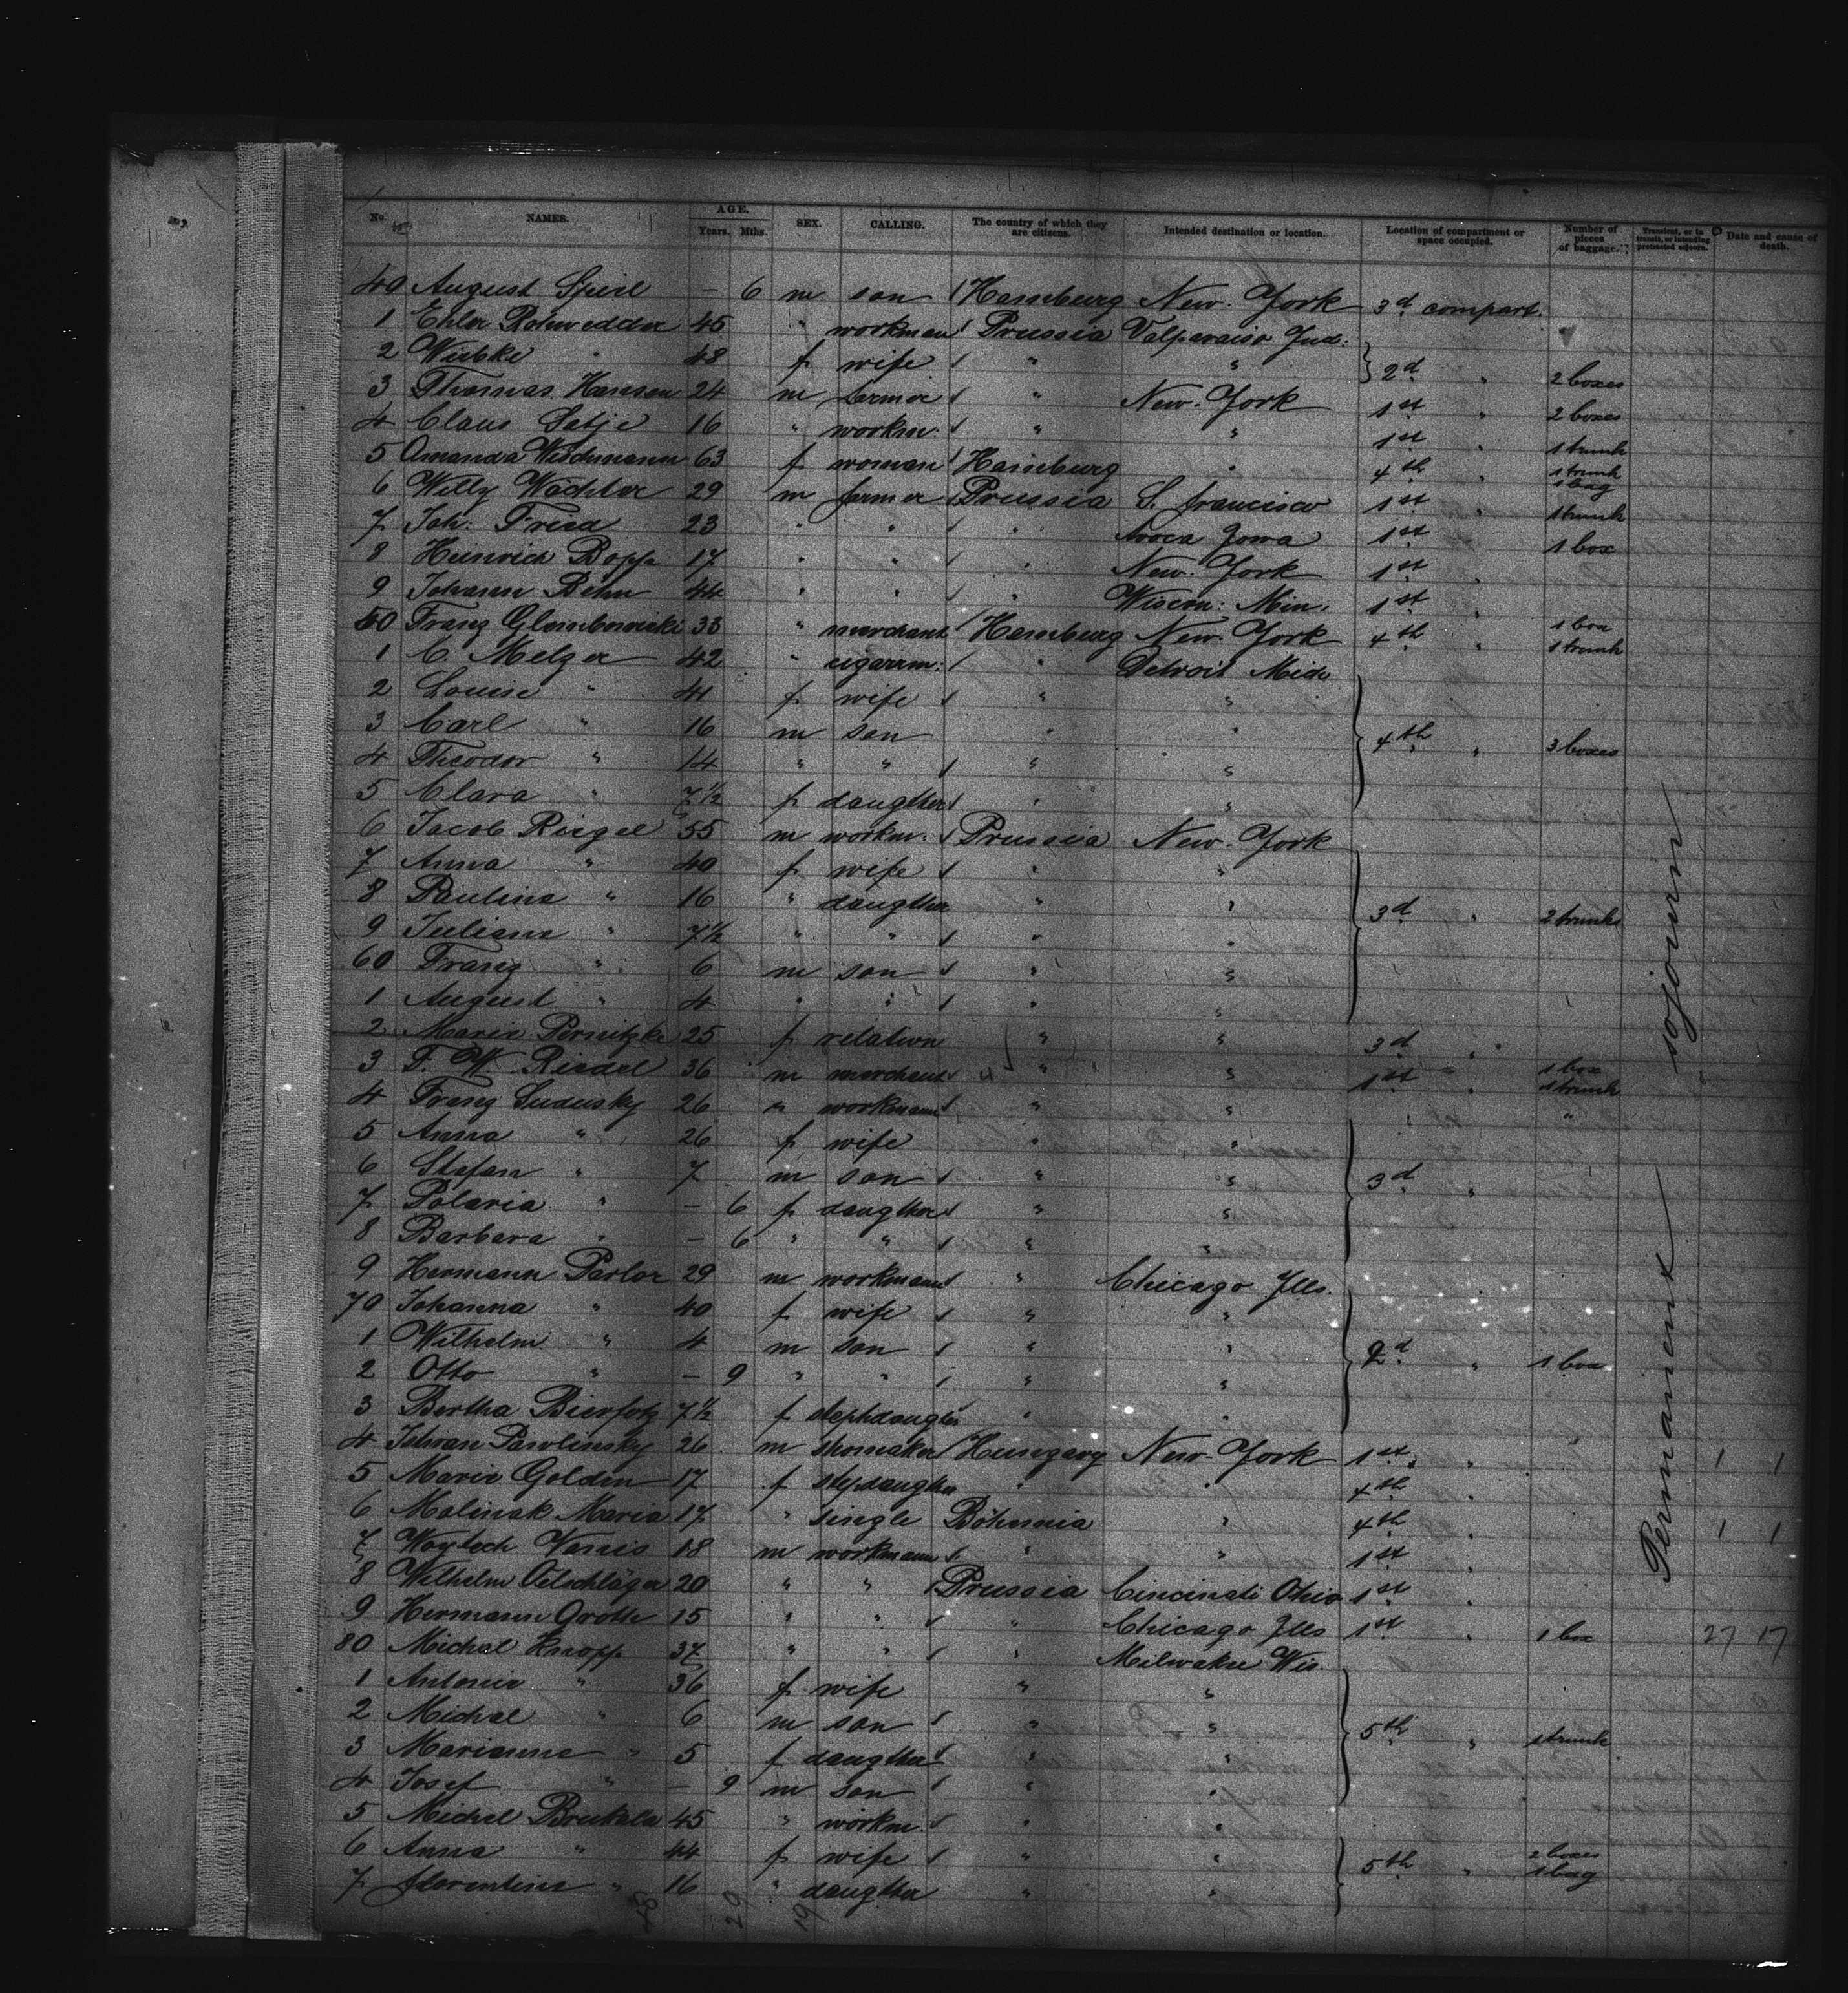 No. NAMES. AGE. Years. Mths. SEX. CALLING. The country of which they are citizens. Intended destination or location. Location of compartment or space occupied. Number of pieces of baggage. Transient, or in transit, or intending protracted sojourn. Date and cause of death.
40 August Spirl — 6 m son Hamburg New-York 3d compart.
1 Ehler Rohwedder 45 " workman Prussia Valparaiso Ind:
2 Wiebke " 48 f wife " " 2d " 2 boxes
3 Thomas Hansen 24 m farmer " New-York 1st " 2 boxes
4 Claus Satje 16 " workm: " " 1st " 1 trunk
5 Amanda Wischmann 63 f woman Hamburg " 4th " 1 trunk 1 bag
6 Willy Wächter 29 m farmer Prussia S. francisco 1st " 1 trunk
7 Joh: Friea 23 " " " Avoca Iowa 1st 1 box
8 Heinrich Bopp 17 " " " New-York 1st "
9 Johann Behn 44 " " " Wiscon: Min: 1st " 1 box
50 Franz Glembowieski 33 " merchant Hamburg New-York 4th " 1 trunk
1 C. Melzer 42 " cigarrm: " Detroit Mich
2 Louise " 41 f wife " "
3 Carl " 16 m son " " 4th " 3 boxes
4 Theodor " 14 " " " "
5 Clara " 7½ f daugther " "
6 Jacob Riegel 55 m workm: Prussia New-York
7 Anna " 40 f wife " "
8 Pauline " 16 " daugther " " 3d " 2 trunks
9 Juliane " 7½ " " " "
60 Franz " 6 m son " "
1 August " 4 " " " "
2 Marie Pernitzke 25 f relation " " 3d "
3 F. W. Riedel 36 m merchant " " 1st " 1 box 1 trunk
4 Franz Sudusky 26 " workmann " " "
5 Anna " 26 f wife " "
6 Stefan " 7 m son " " 3d "
7 Polaria " — 6 f daugther " "
8 Barbara " — 6 " " " "
9 Hermann Parlor 29 m workmann " Chicago Ills.
70 Johanna " 40 f wife " "
1 Wilhelm " 4 m son " " 2d " 1 box
2 Otto " — 9 " " " "
3 Bertha Bierfotz 7½ f stephdaugter " "
4 Istwan Pawlinsky 26 m shomaker Hungary New-York 1st " 1 1
5 Marie Goldin 17 f stepdaugther " " 4th "
6 Malinak Maria 17 " single Böhemia " 4th " 1 1
7 Woytech Wanis 18 m workmann " " 1st "
8 Wilhelm Oelschläger 20 " " Prussia Cincinati Ohio 1st "
9 Hermann Groth 15 " " " Chicago Ills 1st " 1 box 27 17
80 Michal Knopp 37 " " " Milwakee Wis.
1 Antonie " 36 f wife " "
2 Michal " 6 m son " " 5th " 1 trunk
3 Marianna " 5 f daugther " "
4 Josef " — 9 m son " "
5 Michel Brukala 45 " workm: " "
6 Anna " 44 f wife " " 5th " 2 boxes 1 bag
7 florentine " 16 " daugther " "
Permanent sojourn
48 29 19